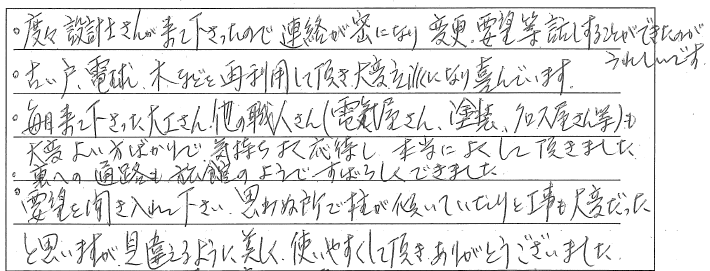 。度々設計士さんが来て下さったので連絡が密になり変更、要望等話しすることができたのが
うれしいです。
。古い戸、電球、木などを再利用して頂き大変立派になり喜んでいます。
。毎日来て下さった大工さん、他の職人さん(電気屋さん、塗装、クロス屋さん等)も
大変よい方ばかりで気持ちよく応待し、本当によくして頂きました
。裏への通路も旅館のようですばらしくできました
。要望を聞き入れて下さい、思わぬ所で柱が傾いていたりと工事も大変だった
と思いますが、見違えるように美しく、使いやすくして頂きありがとうございました。